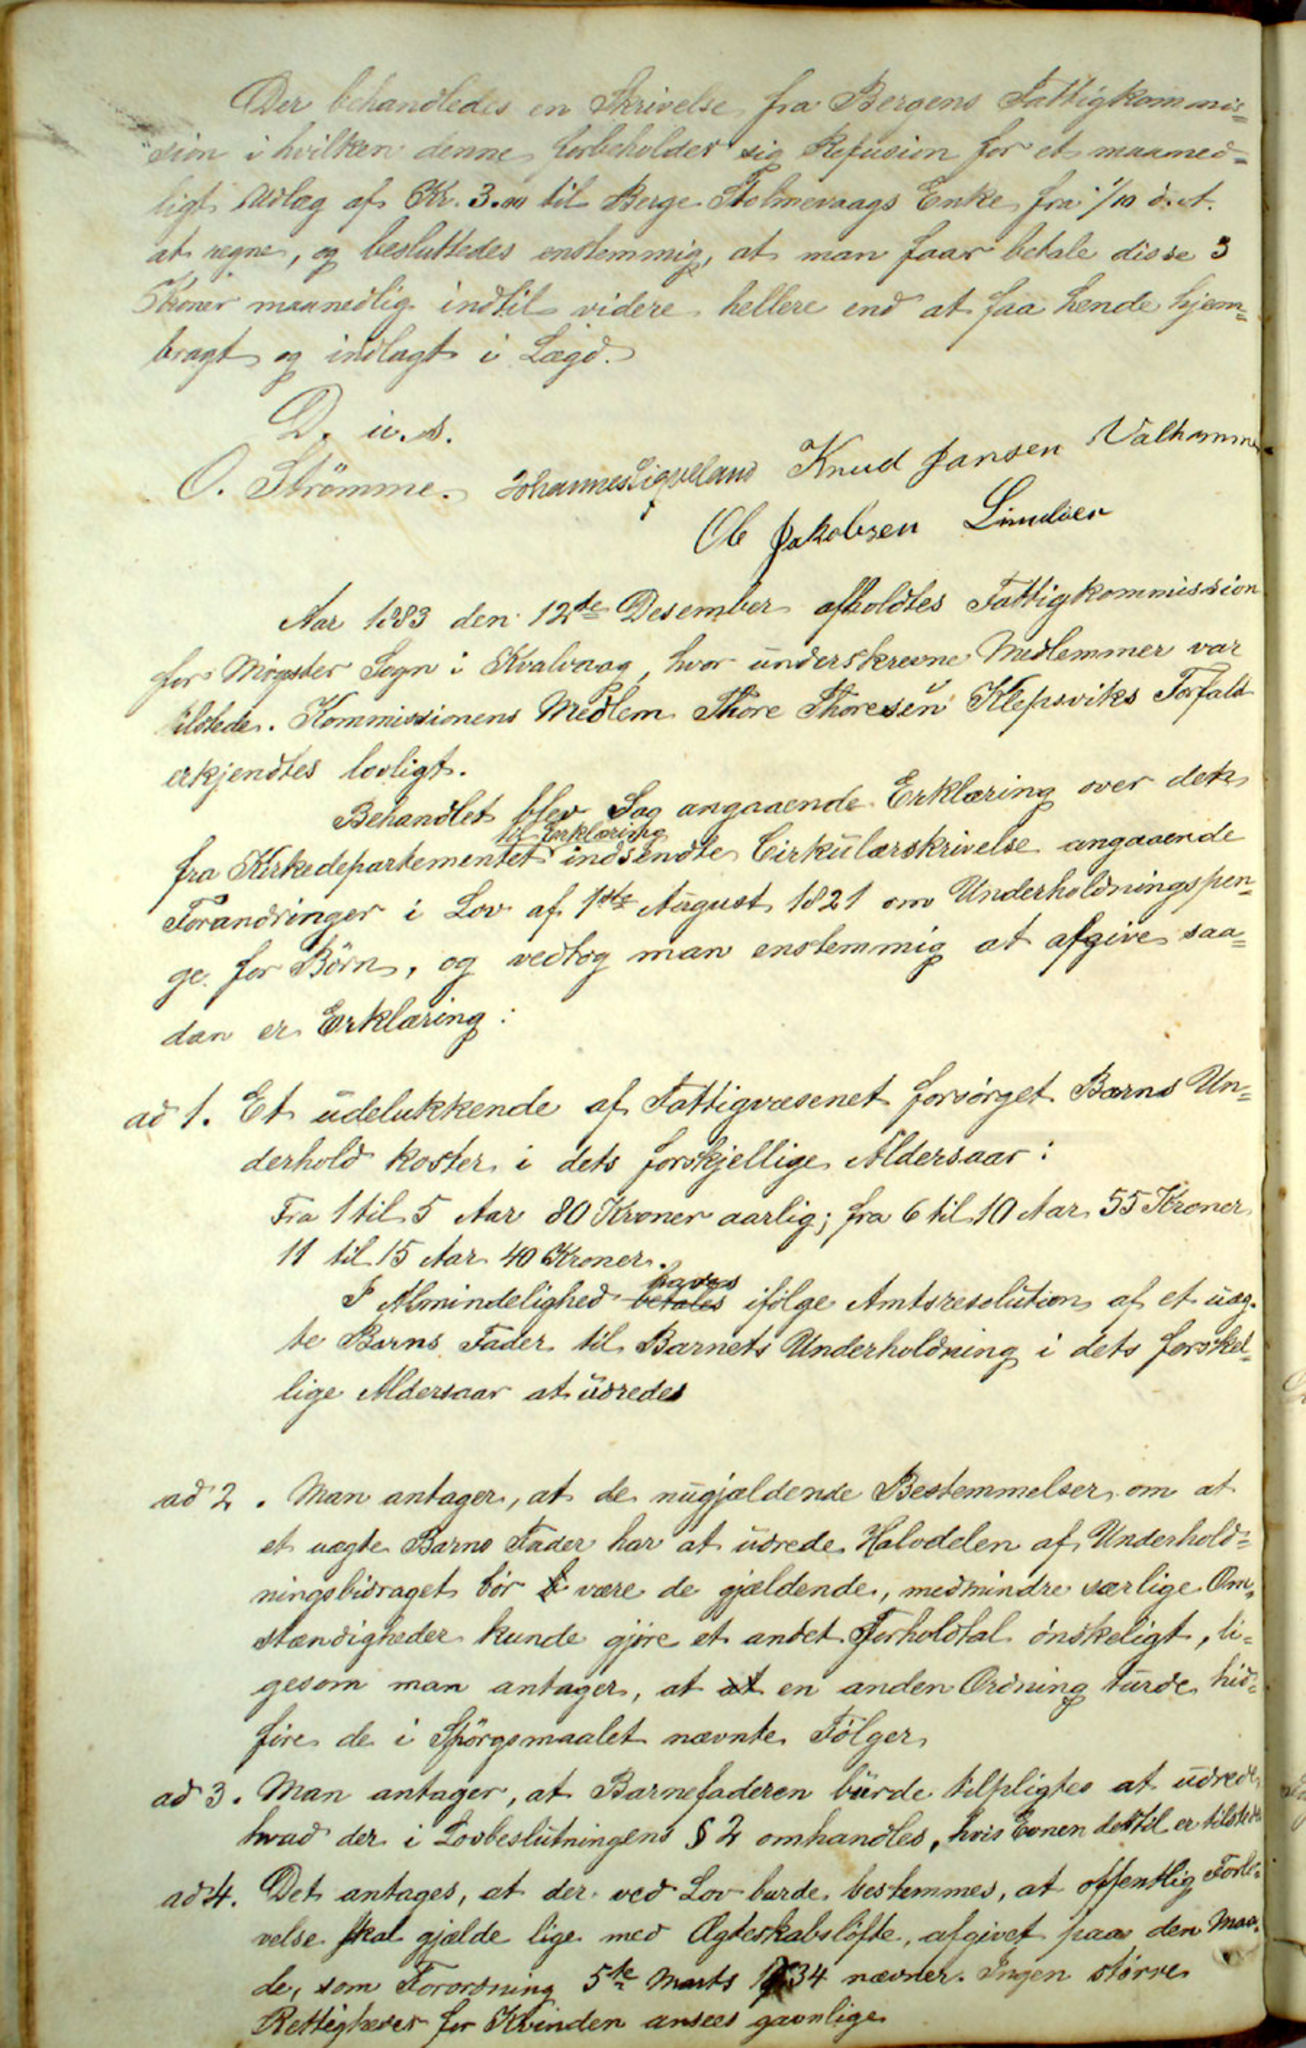 Der behandledes en Skrivelse fra Bergens Fattigkommis=
sion i hvilken denne forbeholder sig Refusion for et maaned=
ligt Udlæg af Kr. 3.00 til Berge Stolmevaags Enke fra 1/10 d. A.
at regne, og besluttedes enstemmig, at man faar betale disse 3
Kroner maanedlig indtil videre hellere end at faa hende hjem=
bragt og indlagt i Lægd.
D. u. s.
O. Strømme. Johannes Liqveland Knud Jansen Valhamme
Ole Jakobsen Limdøen
Aar 1883 den 12te Desember afholdtes Fattigkommission
for Møgster Sogn i Kvalvaag, hvor underskrevne Medlemmer var
tilstede. Kommissionens Medlem Thore Thoresen Klepsviks Forfald
erkjendtes lovligt.
Behandlet blev Sag angaaende Erklæring over den
til Erklæring
fra Kirkedepartementet indsendte Cirkulærskrivelse angaaende
Forandringer i Lov af 1ste August 1821 om Underholdningspen=
ge for Børn, og vedtog man enstemmig at afgive saa=
dan er Erklæring:
ad 1. Et udelukkende af Fattigvæsenet forsørget Barns Un=
derhold koster i dets forskjellige Aldersaar:
Fra 1 til 5 Aar 80 Kroner aarlig; fra 6 til 10 Aar 55 Kroner
11 til 15 Aar 40 Kroner.
paves
I Almindelighed betales ifølge Amtsresolution af et uæg=
te Barns Fader til Barnets Underholdning i dets forskel=
lige Aldersaar at udredes
ad 2. Man antager, at de nugjældende Bestemmelser om at
et uægte Barns Fader har at udrede Halvdelen af Underhold=
ningsbidraget bør b være de gjældende, medmindre særlige Om=
stændigheder kunde gjøre et andet Forholdtal ønskeligt, li=
gesom man antager, at at en anden Ordning turde hid=
føre de i Spørgsmaalet nævnte Følger
ad 3. Man antager, at Barnefaderen burde tilpligtes at udrede
hvad der i Lovbeslutningens § 2 omhandles, hvis Evnen dertil er tilstede
ad 4. Det antages, at der ved Lov burde bestemmes, at offentlig Forlo=
velse skal gjælde lige med Ægteskabsløfte, afgivet paa den Maa=
de, som Forordning 5te Marts 1734 nævner. Ingen større
Rettigheder for Kvinden ansees gavnlige